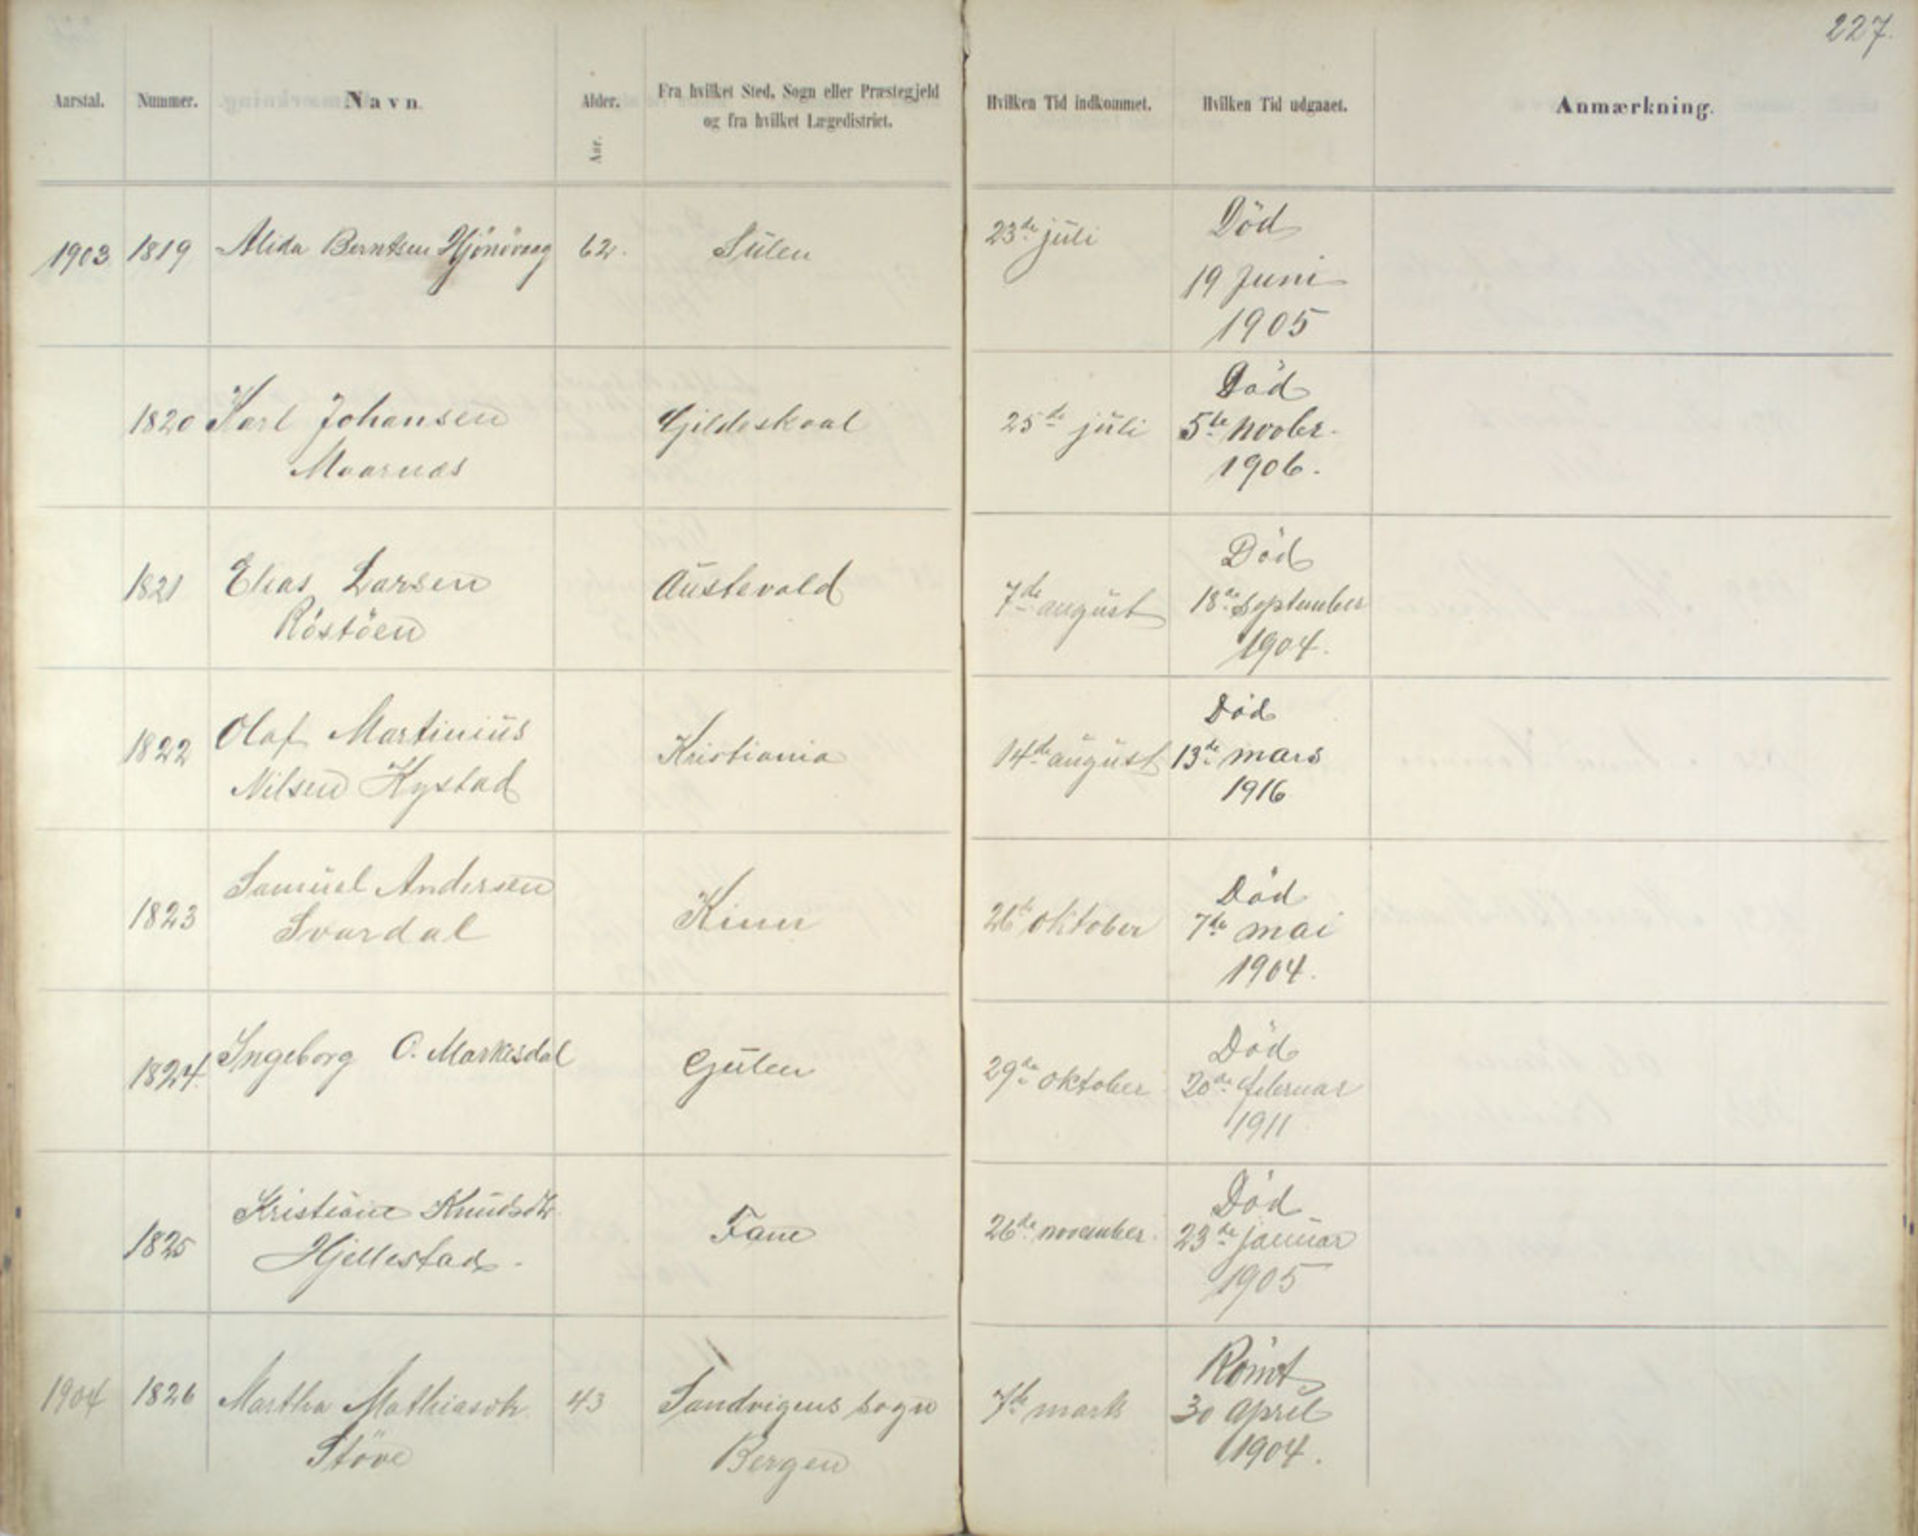 227.
Aarstal. Nummer. Navn. Alder. Aar. Fra hvilket Sted, Sogn eller Præstegjeld og fra hvilket Lægedistrict. Hvilken Tid indkommet. Hvilken Tid udgaaet. Anmærkning.
1903 1819 Alida Berntsen 62. Sülen 23de juli Död
19 Juni
1905
1820 Karl Johansen Gjildeskaal 25de jüli Död
Maarnæs 5te novbr.
1906.
1821 Elias Larsen Austevold 7de august Död
Röstöen 18de September
1904.
1822 Olaf Martiniüs Kristiania 14de aügüst Död
Nilsen Kystad 13de mars
1916
1823 Samüel Andersen Kinn 26de oktober Död
Svardal 7de mai
1904.
1824. Ingeborg O. Markesdal Gülen 29de oktober Död
20de februar
1911
1825 Kristiane Knüdsdtr. Fane 26de november. Död
Hjellestad. 23de januar
1905
1904 1826 Martha Mathiasdtr. 43 Sandvigens sogn 7de marts Römt
Störe Bergen 30 April
1904.